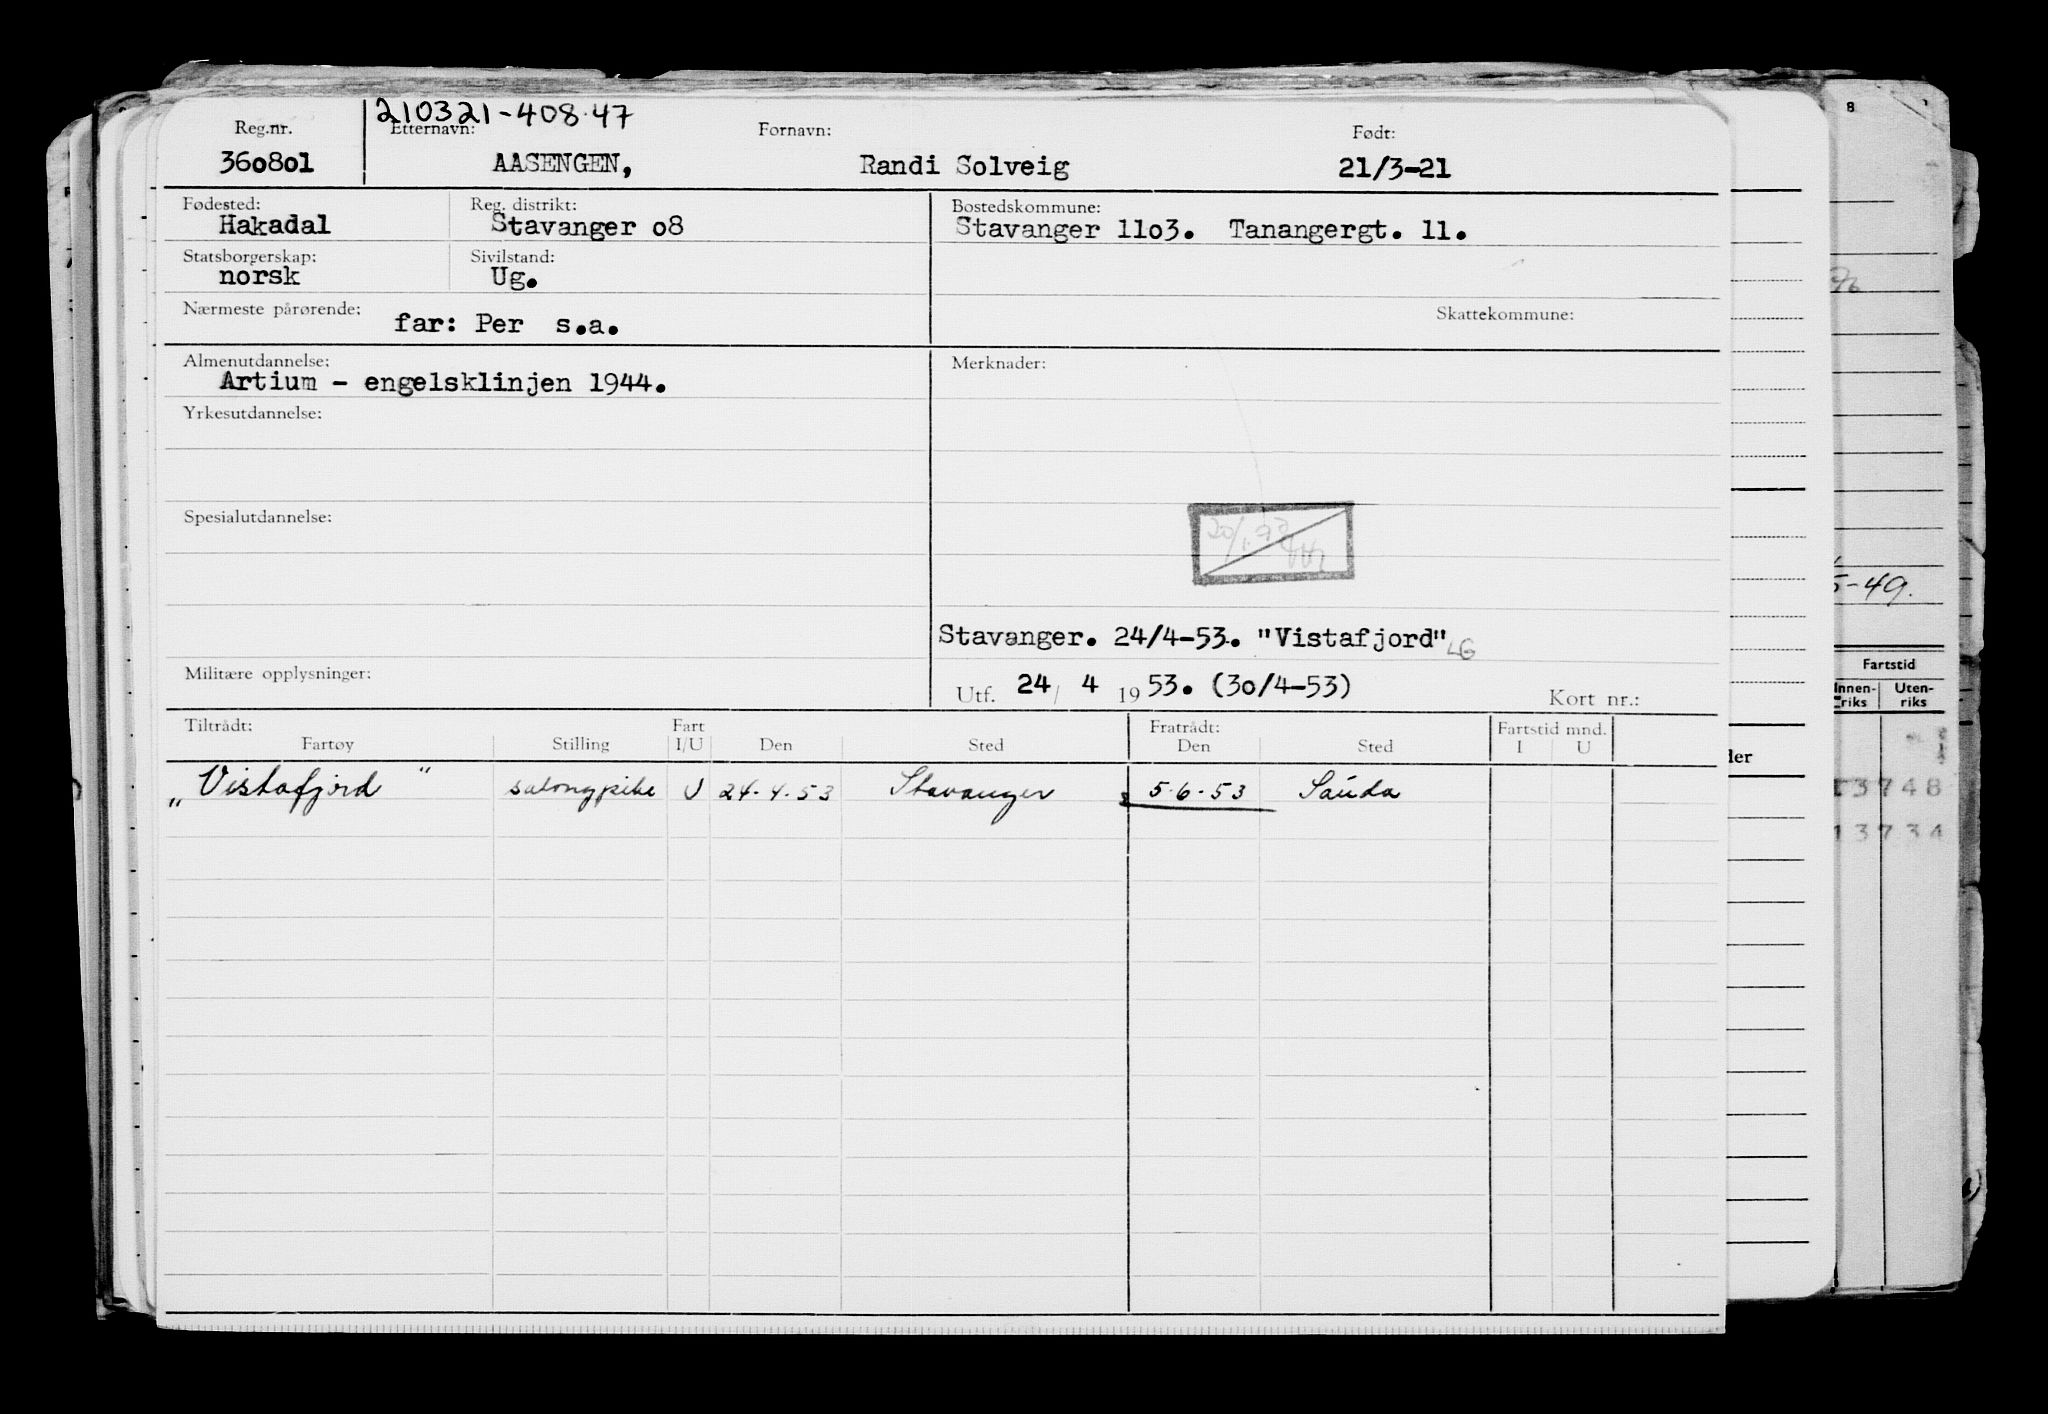 210321-408.47
Reg.nr. Etternavn: Fornavn: Født:
360801 AASENGEN, Randi Solveig 21/3-21
Fødested: Reg. distrikt: Bostedskommune:
Hakadal Stavanger o8 Stavanger 11o3. Tanangergt. 11.
Statsborgerskap: Sivilstand:
norsk Ug.
Nærmeste pårørende: Skattekommune:
far: Per s.a.
Almenutdannelse: Merknader:
Artium - engelsklinjen 1944.
Yrkesutdannelse:
Spesialutdannelse:
Stavanger. 24/4-53. "Vistafjord" LG
Militære opplysninger:
Utf. 24/ 4 19 53. (30/4-53) Kort nr.:
Tiltrådt: Fart Fratrådt: Fartstid mnd.
Fartøy Stilling I/U Den Sted Den Sted I U
"Vistafjord" salongpike U 24-4-53 Stavanger 5-6-53 Sauda
8
5-49.
Fartstid
Innen- Uten-
riks riks
der
13748
13734